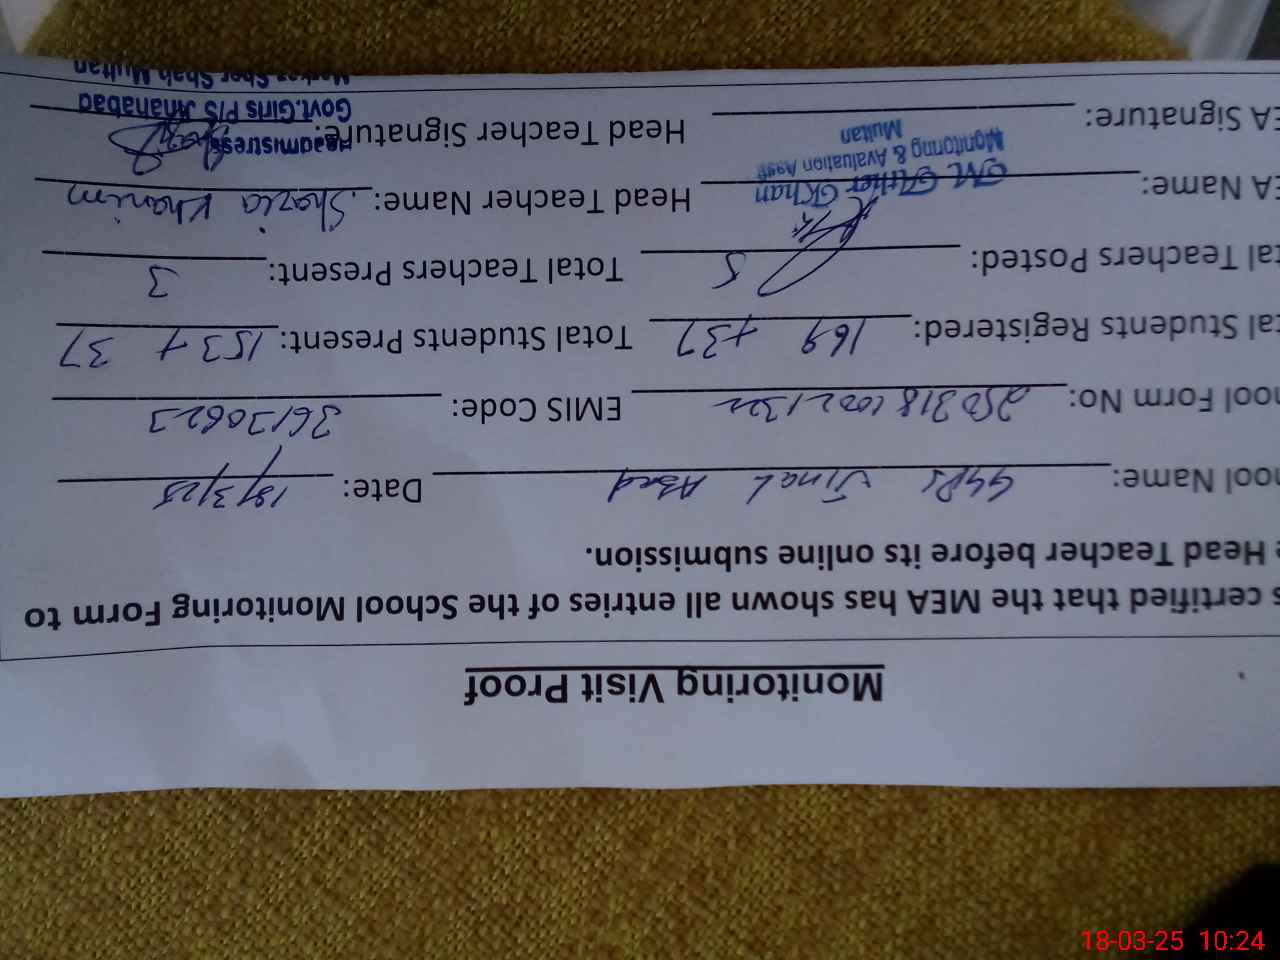 Monitoring Visit Proof
s certified that the MEA has shown all entries of the School Monitoring Form to
e Head Teacher before its online submission.
hool Name: GGPS Jinal Abad Date: 18/3/25
hool Form No: EMIS Code: 36130623
tal Students Registered: 169 +37 Total Students Present: 153+ 37
tal Teachers Posted: 5 Total Teachers Present: 3
EA Name: M. Ather Khan Head Teacher Name: Shazia Khanim
Monitoring & Avaluation Asst
Multan
EA Signature: Head Teacher Signature:
Headmistress
Govt.Girls P/S Jinanabad
Markaz Sher Shah Multan
18-03-25 10:24